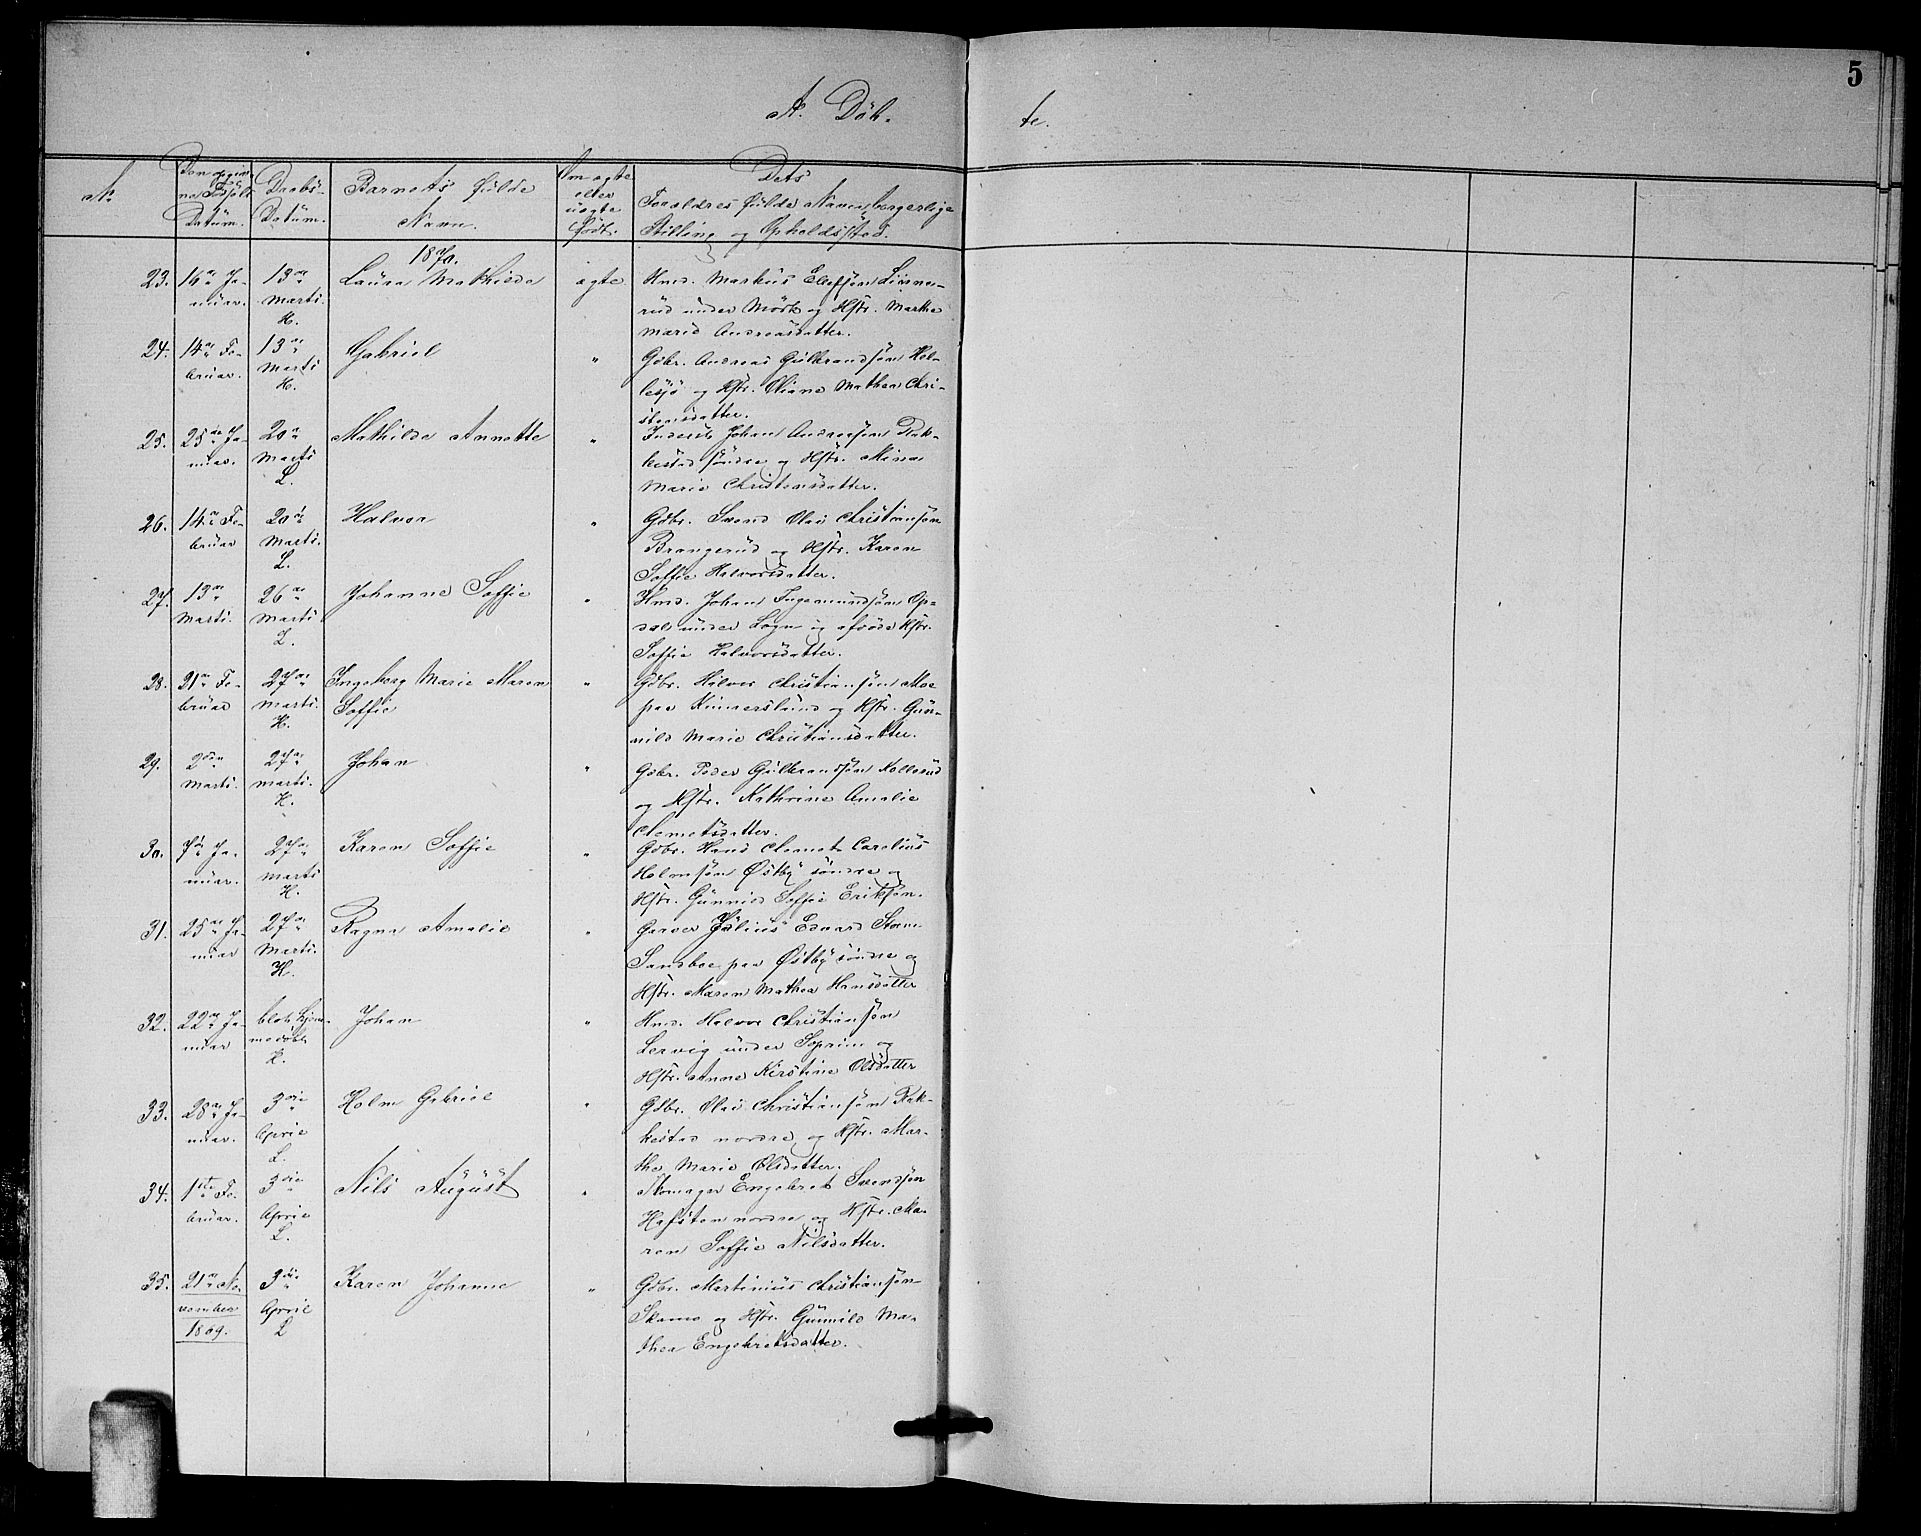 5
A. Døb- te.
No
Datum.
Daabs-
Datum.
Barnets fulde
Navn.
Om ægte
eller
uægte
født.
Dets
Forældres fulde Navn, borgerlige
Stilling og Opholdssted.
1870.
23. 16de Ja-
nuar.
13de
Marts
H.
Laura Mathilde
ægte
Hmd. Markus Ellefsøn
rud under Mørk og Hstr. Marthe
Marie Andreasdatter.
24. 14de Fe-
bruar.
13de
Marts
H.
Gabriel
"
Gdbr. Andreas Gulbrandsøn Hol-
lesjø og Hstr. Oliane Mathea Chri-
stensdatter.
25. 25de Ja-
nuar.
20de
Marts
L.
Mathilde Annette
"
Inderst Johan Andreasøn Rak-
kestad søndre og Hstr. Mina
Marie Christensdatter.
26. 14de Fe-
bruar
20de
Marts.
L.
Halvor
"
Gdbr. Svend Olai Christiansøn
Brangerud og Hstr. Karen
Soffie Halvorsdatter.
27. 13de
Marts.
26de
Marts
L.
Johanne Soffie
"
Hmd. Johan Ingemundsøn Op-
dal under Sogn og afdøde Hstr.
Soffie Halvorsdatter.
28. 21de Fe-
bruar
27de
Marts.
H.
Ingeborg Marie Maren
Soffie
"
Gdbr. Halvor Christiansøn Moe
paa Kinnersland og Hstr. Gun-
nild Marie Christiansdatter.
29. 2den
Marts.
27de
Marts.
H.
Johan
"
Gdbr. Peder Gulbrandsøn Kollerud
og Hstr. Kathrine Amalie
Clemetsdatter.
30. 7de Ja-
nuar.
27de
Marts
H.
Karen Soffie
"
Gdbr. Hans Clemet Carelius
Holmsøn Østby søndre og
Hstr. Gunnild Soffie Eriksøn.
31. 25de Ja-
nuar
27de
Marts.
H.
Ragna Amalie
"
Garver Julius Edvard
Sandboe paa Østby søndre og
Hstr. Maren Mathea Hansdatter
32. 22de Ja-
nuar
blot hjem-
medøbt
H.
Johan
"
Hmd. Halvor Christiansøn
Lervig under Soprim og
Hstr. Anne Kirstine Olsdatter
33. 28de Ja-
nuar.
3die
April
L.
Holm Gabriel
"
Gdbr. Olai Christiansøn Rak-
kestad nordre og Hstr. Mar-
the Marie Olsdatter.
34. 1ste Fe-
bruar.
3die
April
L.
Nils August
"
Skomager Engebret Svendsøn
Hafsten nordre og Hstr. Ma-
ren Soffie Nilsdatter.
35. 21de No-
vember
1869.
3die
April
L
Karen Johanne
"
Gdbr. Martinius Christiansøn
Skamo og Hstr. Gunnild Ma-
thea Engebretsdatter.